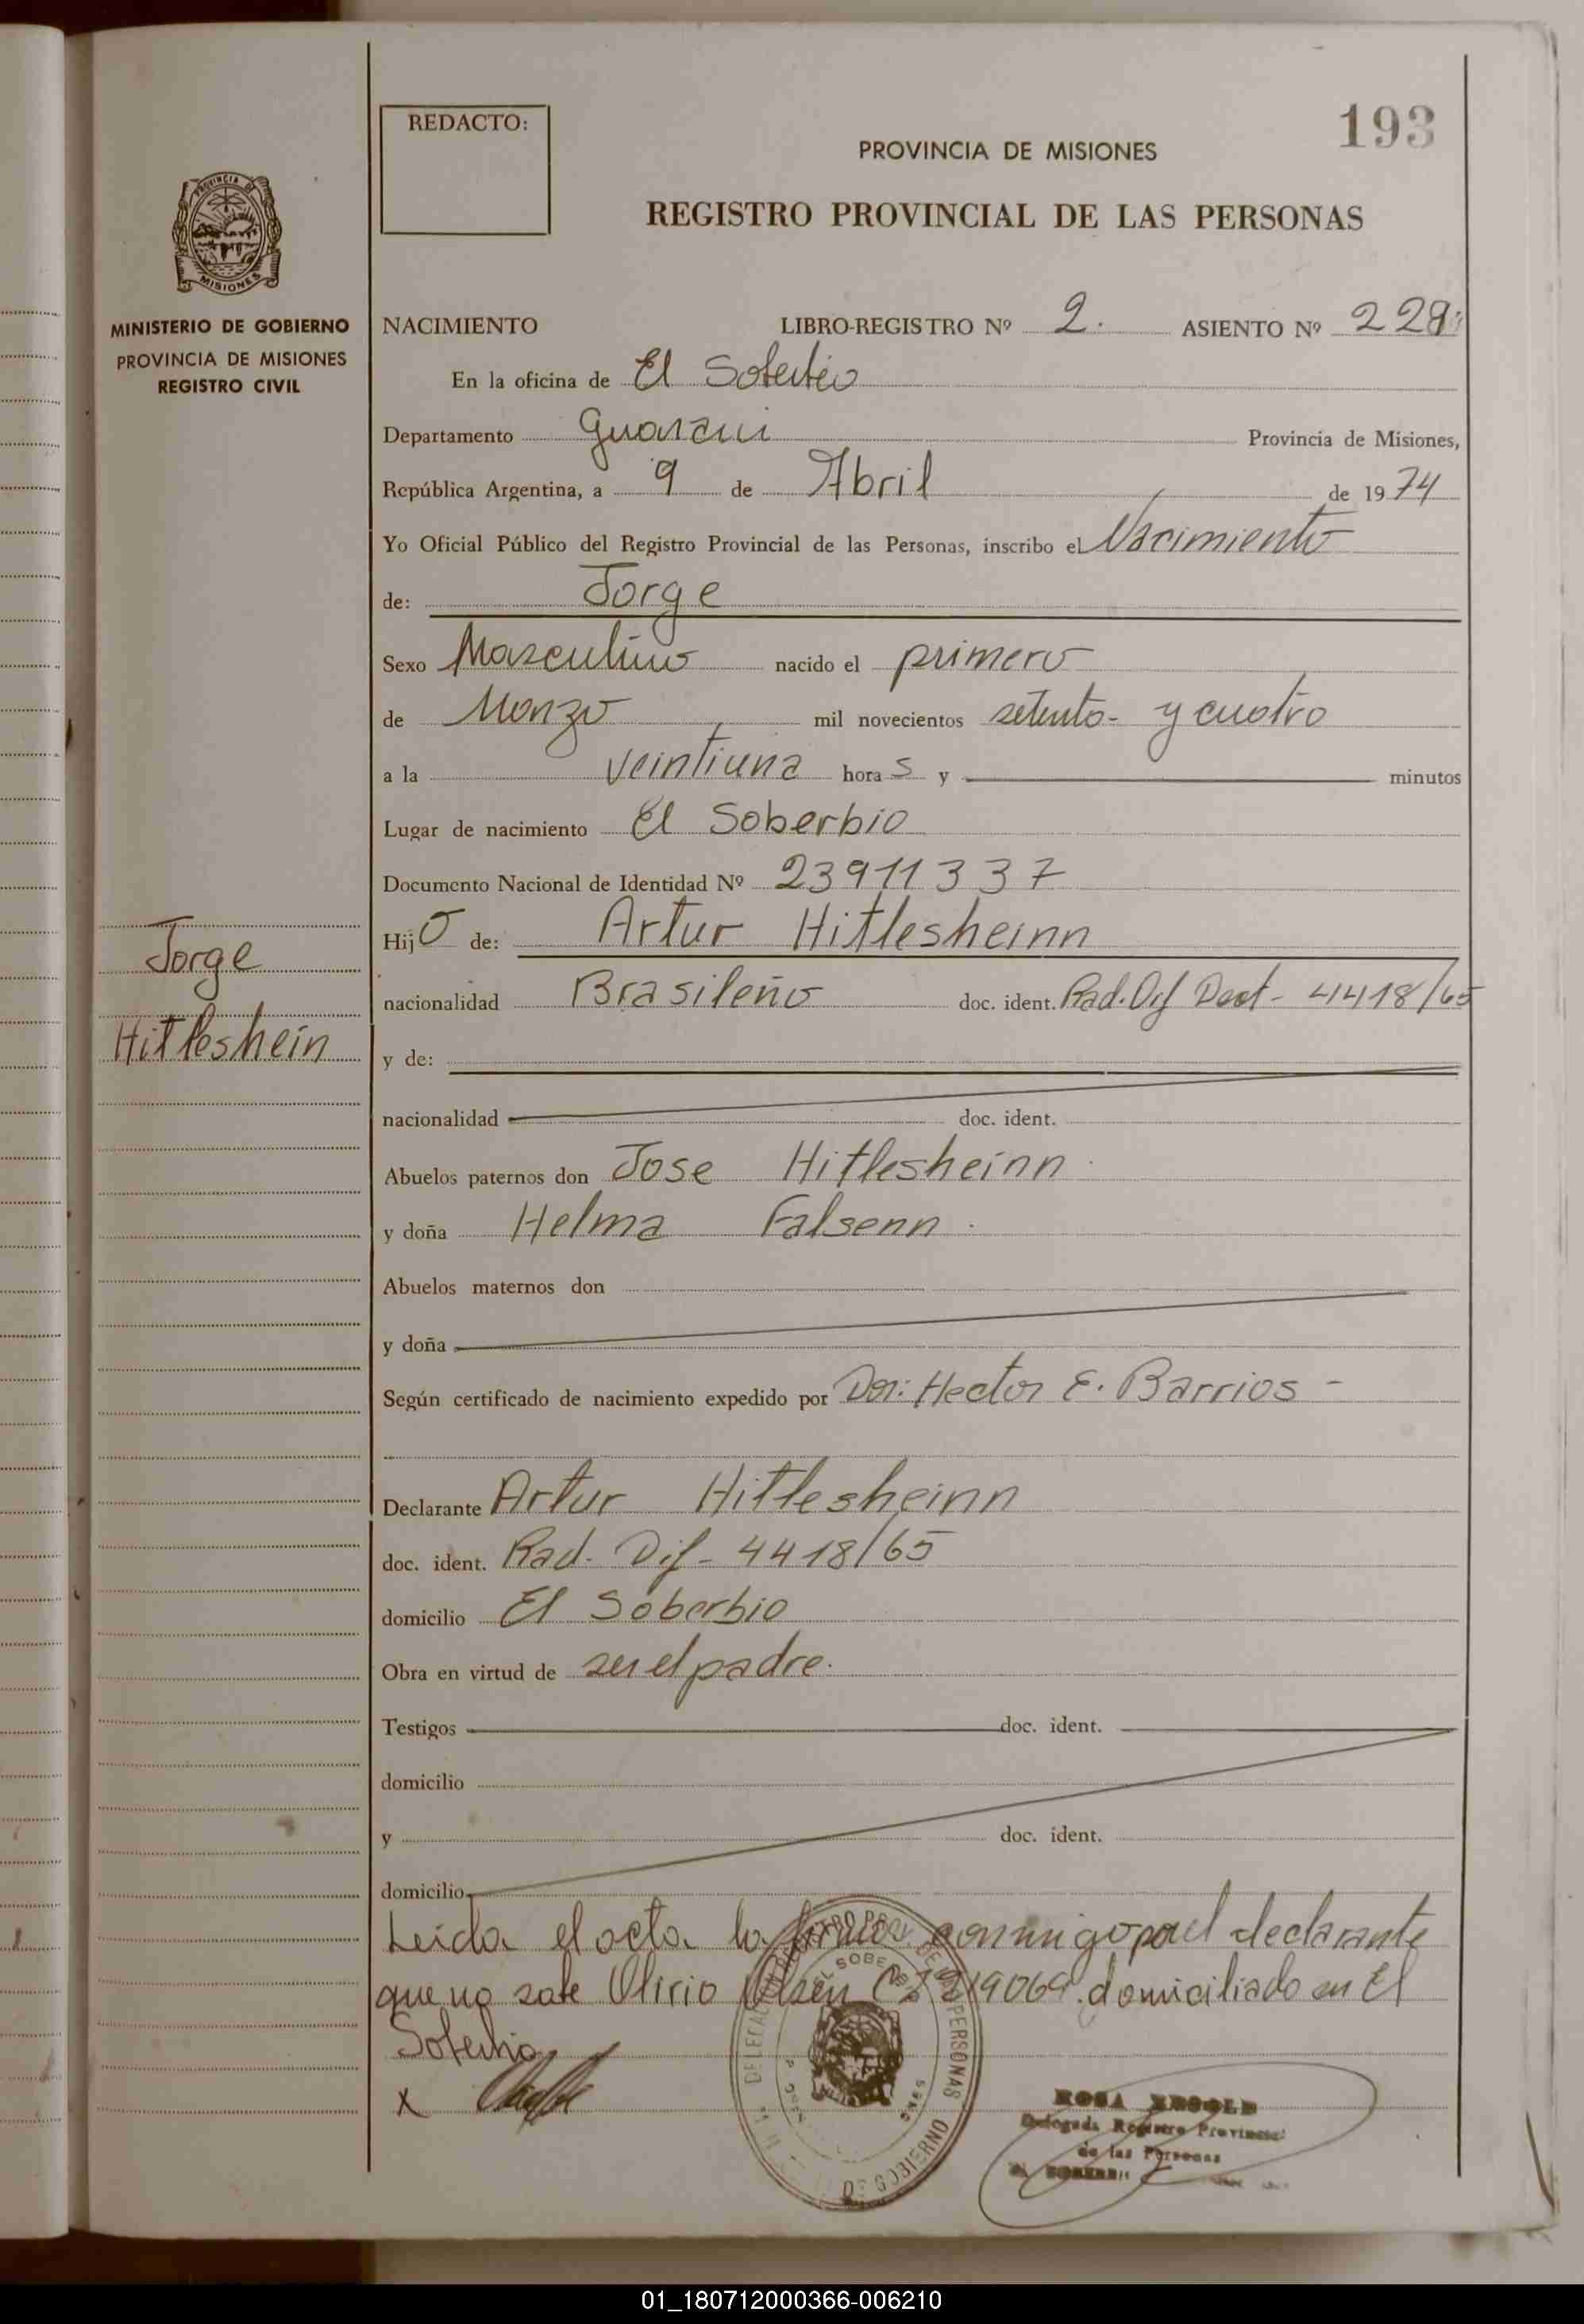 REDACTO:
193
PROVINCIA DE MISIONES
REGISTRO PROVINCIAL DE LAS PERSONAS
PROVINCIA DE
MISIONES
MINISTERIO DE GOBIERNO
PROVINCIA DE MISIONES
REGISTRO CIVIL
NACIMIENTO LIBRO-REGISTRO Nº 2. ASIENTO Nº 228
En la oficina de El Soberbio
Departamento Guarani Provincia de Misiones,
República Argentina, a 9 de Abril de 1974
Yo Oficial Público del Registro Provincial de las Personas, inscribo el Nacimiento
de: Jorge
Sexo Masculino nacido el primero
de Marzo mil novecientos setenta y cuatro
a la veintiuna hora s y minutos
Lugar de nacimiento El Soberbio
Documento Nacional de Identidad Nº 23911337
Hijo de: Artur Hitlesheinn
nacionalidad Brasileño doc. ident. Rad. Dif Dect - 4418/65
y de:
nacionalidad doc. ident.
Jorge
Hitleshein
Abuelos paternos don Jose Hitlesheinn
y doña Helma Falsenn
Abuelos maternos don
y doña
Según certificado de nacimiento expedido por Dor: Hector E. Barrios -
Declarante Artur Hitlesheinn
doc. ident. Rad. Dif - 4418/65
domicilio El Soberbio
Obra en virtud de ser el padre.
Testigos doc. ident.
domicilio
y doc. ident.
domicilio
Leida el acta la conmigo por el declarante
que no sabe Olirio domiciliado en El
Soberbio
x
DE LAS PERSONAS
DE GOBIERNO
ROSA
Delegada Registro Provincial
de las Personas
01_180712000366-006210